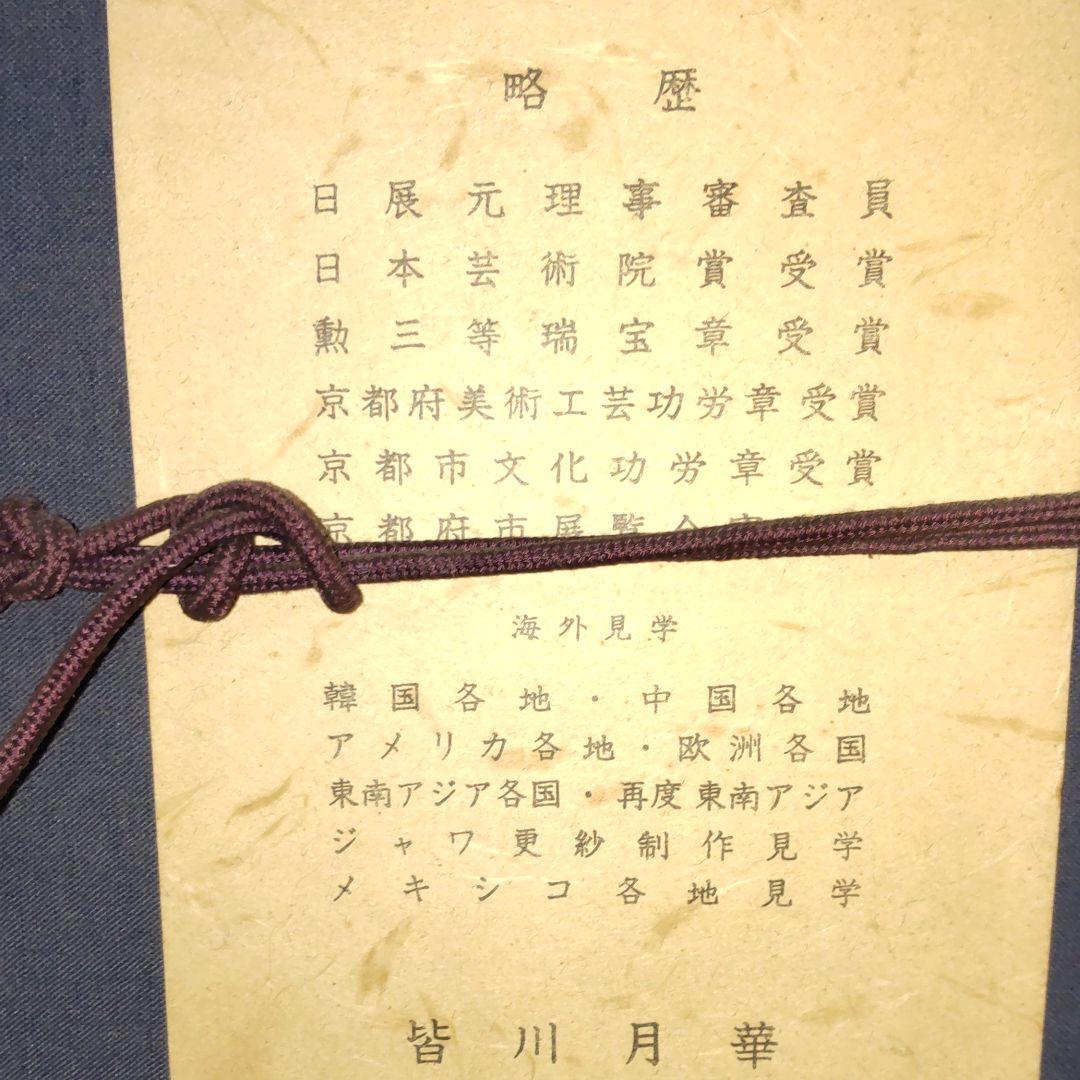 略歴
日展元理事審査員
日本芸術院賞受賞
勲三等瑞宝章受賞
京都府美術工芸功労章受賞
京都市文化功労章受賞
京都府市展覧会審
海外見学
韓国各地・中国各地
アメリカ各地・欧洲各国
東南アジア各国・再度東南アジア
ジャワ更紗制作見学
メキシコ各地見学
皆川月華